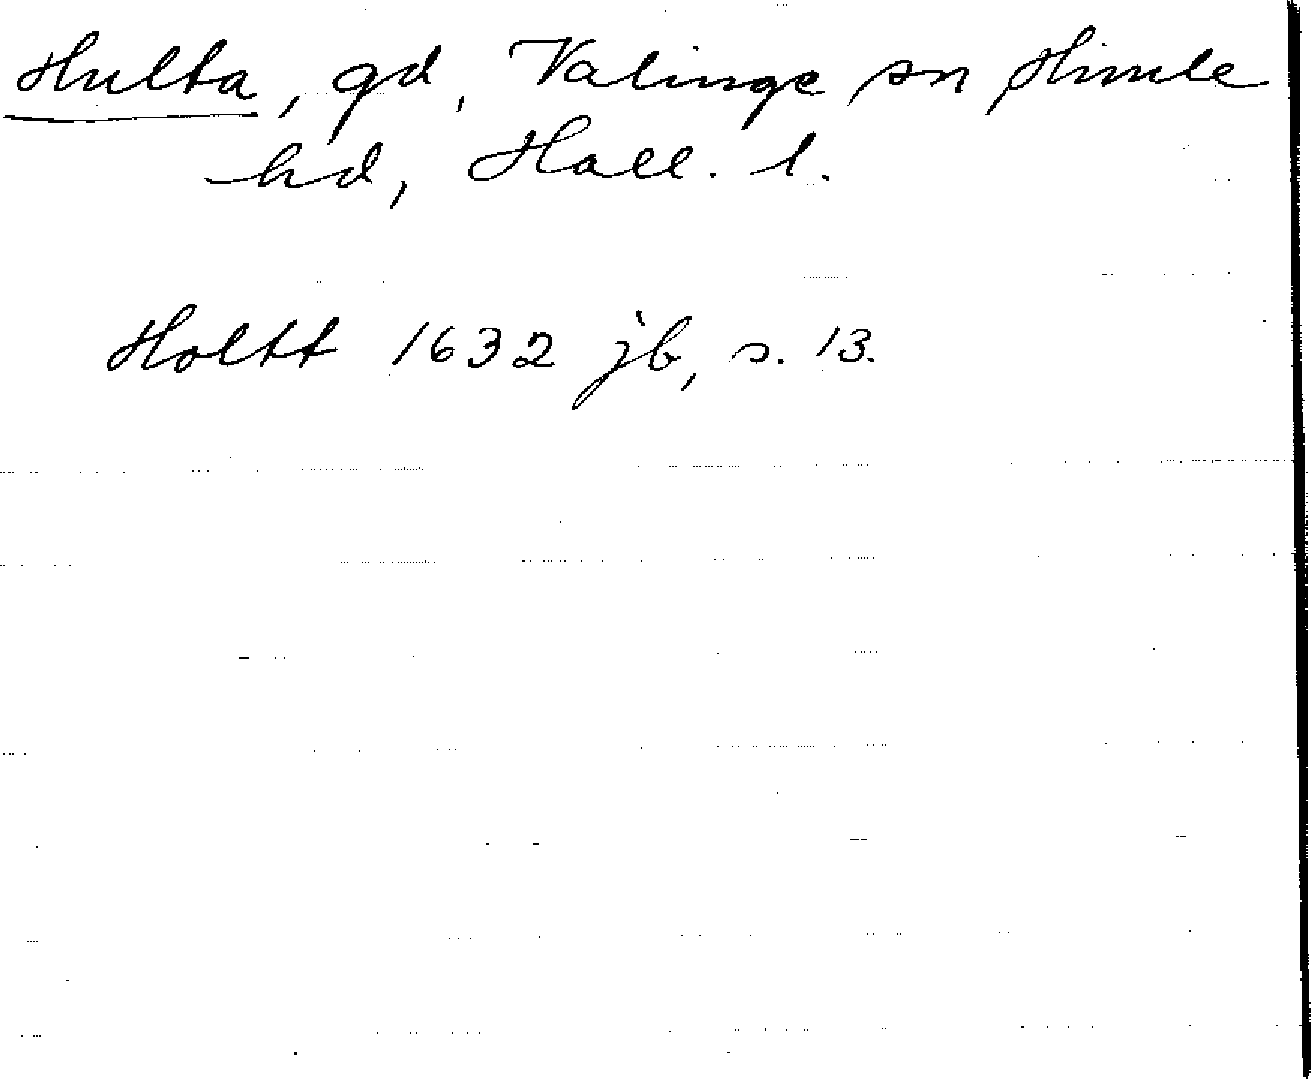 Hulta, gd, Valinge sn Himle
hd, Hall. l.
Holtt 1632 jb, s. 13.